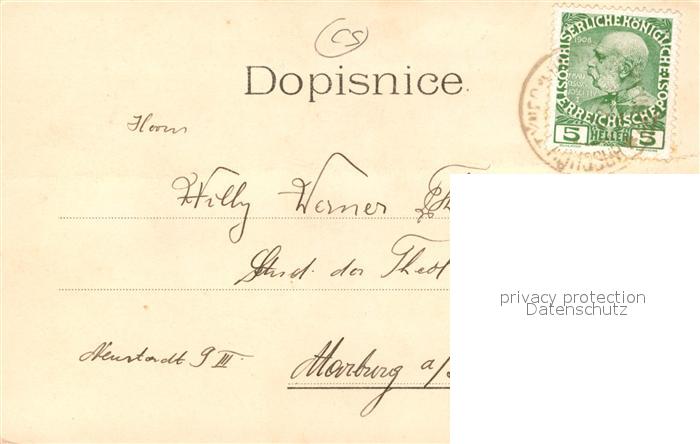 CS
Dopisnice
KAISERLICHE KÖNIGLICHE
1908
ÖSTERREICHISCHE POST
5 HELLER 5
Herrn
Willy Werner
Stud. der Theol
Neustadt 9 III.
Marburg a/
privacy protection
Datenschutz